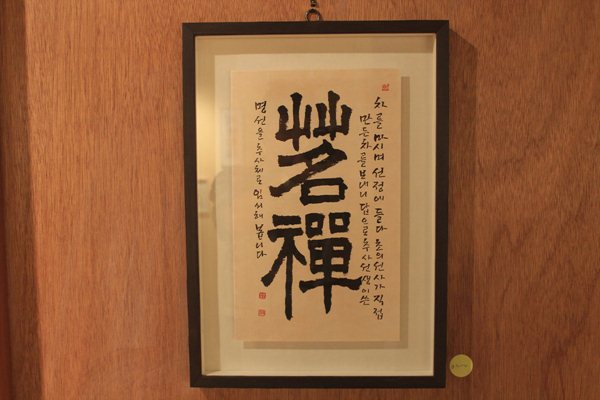 차를 마시며 선정에 들다 초의선사가 직접
만든 차를 보내니 답으로 추사 선생이 쓴
茗禪
명선을 추사체로 임서해 봅니다